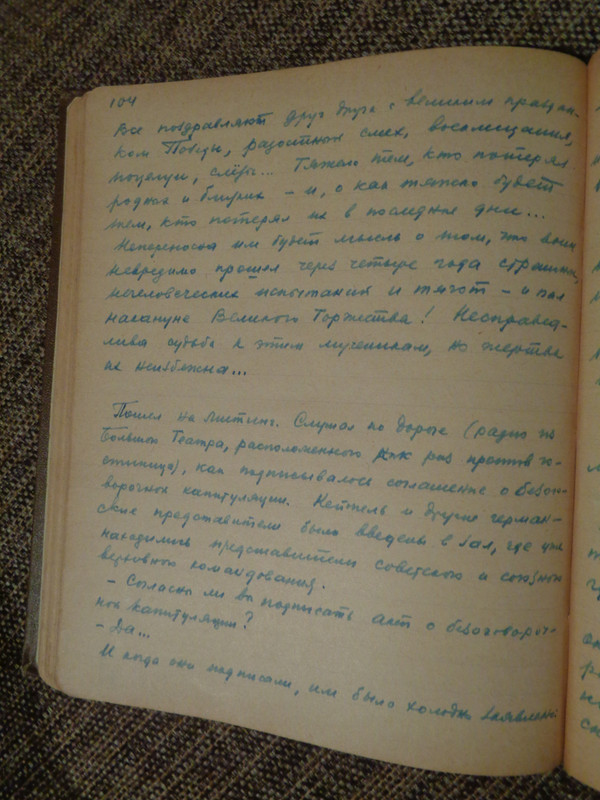 104
Все поздравляют друг друга с великим праздни-
ком Победы, радостный смех, восклицания,
поцелуи, слёзы... Тяжело тем, кто потерял
родных и близких – и, о как тяжело будет
тем, кто потерял их в последние дни...
Непереносна им будет мысль о том, что воин
невредимо прошел через четыре года страшных,
нечеловеческих испытаний и тягот – и пал
накануне Великого Торжества! Несправед-
лива судьба к этим мученикам, но жертвы
их неизбежны...
Пошел на митинг. Слушал по дороге (радио из
Большого Театра, расположенного как раз против го-
стиницы), как подписывалось соглашение о безого-
ворочной капитуляции. Кейтель и другие герман-
ские представители были введены в зал, где уже
находились представители советского и союзного
верховного командования.
– Согласны ли вы подписать акт о безоговороч-
ной капитуляции?
– Да...
И когда они подписали, им было холодно заявлено